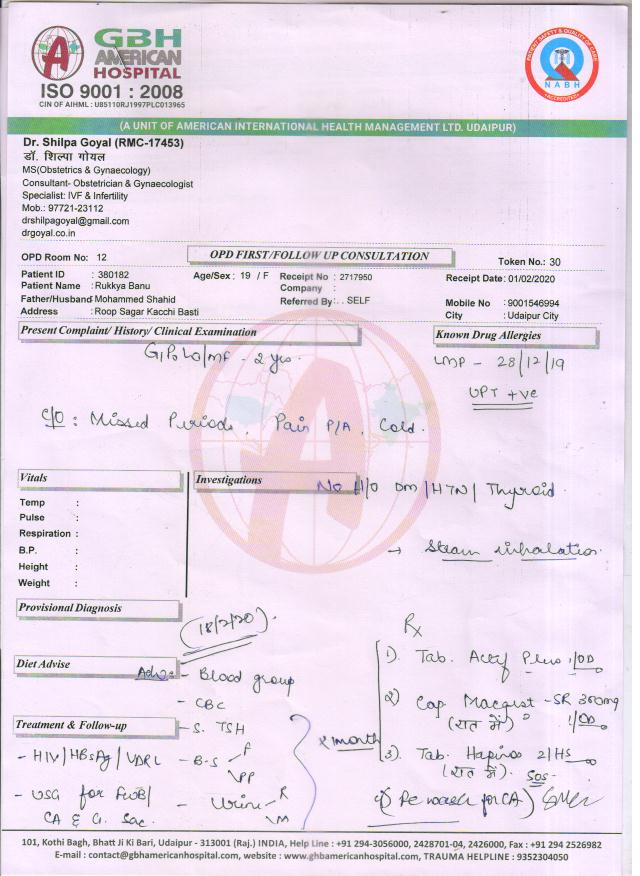 GBH
AMERICAN
HOSPITAL
ISO 9001 : 2008
CIN OF AIHML : U85110RJ1997PLC013965
PATIENT SAFETY & QUALITY OF CARE
NABH
ACCREDITED
(A UNIT OF AMERICAN INTERNATIONAL HEALTH MANAGEMENT LTD. UDAIPUR)
Dr. Shilpa Goyal (RMC-17453)
डॉ. शिल्पा गोयल
MS(Obstetrics & Gynaecology)
Consultant- Obstetrician & Gynaecologist
Specialist: IVF & Infertility
Mob.: 97721-23112
drshilpagoyal@gmail.com
drgoyal.co.in
OPD Room No: 12
OPD FIRST/FOLLOW UP CONSULTATION
Token No.: 30
Patient ID : 380182
Age/Sex : 19 / F
Receipt No : 2717950
Receipt Date: 01/02/2020
Patient Name : Rukkya Banu
Company :
Father/Husband Mohammed Shahid
Referred By : . . SELF
Mobile No : 9001546994
Address : Roop Sagar Kacchi Basti
City : Udaipur City
Present Complaint/ History/ Clinical Examination
Known Drug Allergies
G1P0L0/MF - 2 yrs.
LMP - 28/12/19
UPT +ve
C/O : Missed Periods, Pain P/A, Cold.
Vitals
Investigations
No H/O DM/HTN/Thyroid.
Temp :
Pulse :
Respiration :
B.P. :
Height :
Weight :
→ Steam inhalation.
Provisional Diagnosis
(18/2/20).
Rx
Diet Advise
Adv:- - Blood group
- CBC
- S. TSH
1). Tab. Plus 1/OD
2) Cap. - SR 300mg
(रात में) 1/OD
Treatment & Follow-up
x 1 month
- HIV/HBsAg/VDRL
- B.S F
PP
3). Tab. 2/HS
(रात में). SOS
- USG for FWB/
CA & G. Sac.
- Urine R
M
101, Kothi Bagh, Bhatt Ji Ki Bari, Udaipur - 313001 (Raj.) INDIA, Help Line : +91 294-3056000, 2428701-04, 2426000, Fax : +91 294 2526982
E-mail : contact@gbhamericanhospital.com, website : www.gbhamericanhospital.com, TRAUMA HELPLINE : 9352304050